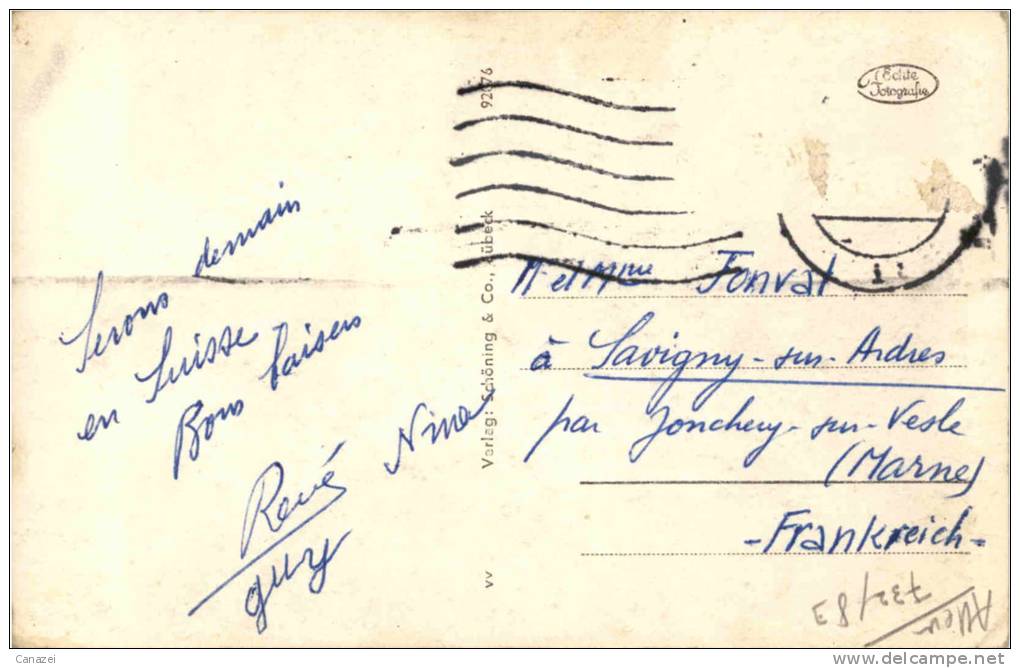 Serons demain
en Suisse
Bons baisers
Nina
René
guy
Verlag: Schöning & Co., Lübeck
92076
VV
Echte
Fotografie
M et Mme Fonval
à Savigny-sur-Ardres
par Jonchery-sur-Vesle
(Marne)
-Frankreich-
732/83
Canazei
www.delcampe.net